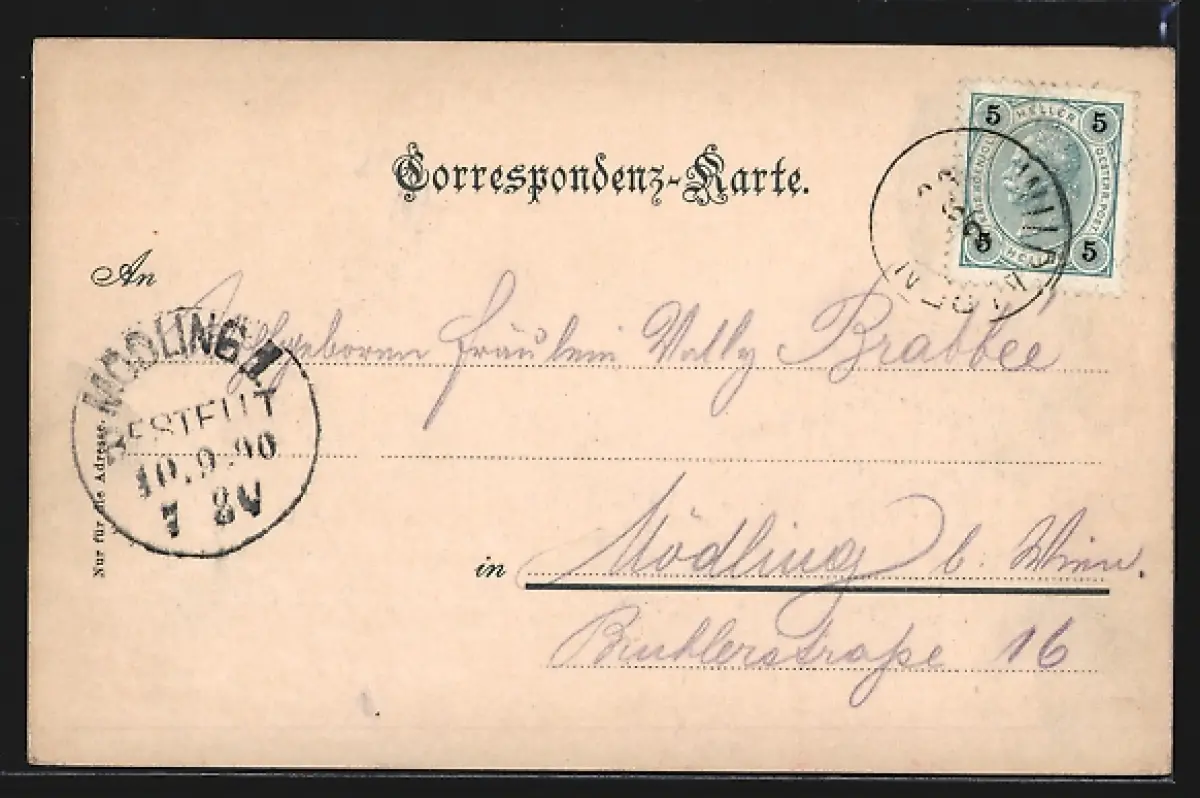 Correspondenz-Karte.
5 HELLER 5
5 HELLER 5
An
Hochwohlgeboren Fräulein Vally Brabbée
MÖDLING 1.
BESTELLT
10.9.90
7 8V
Nur für die Adresse.
in Mödling b. Wien.
Brühlerstraße 16